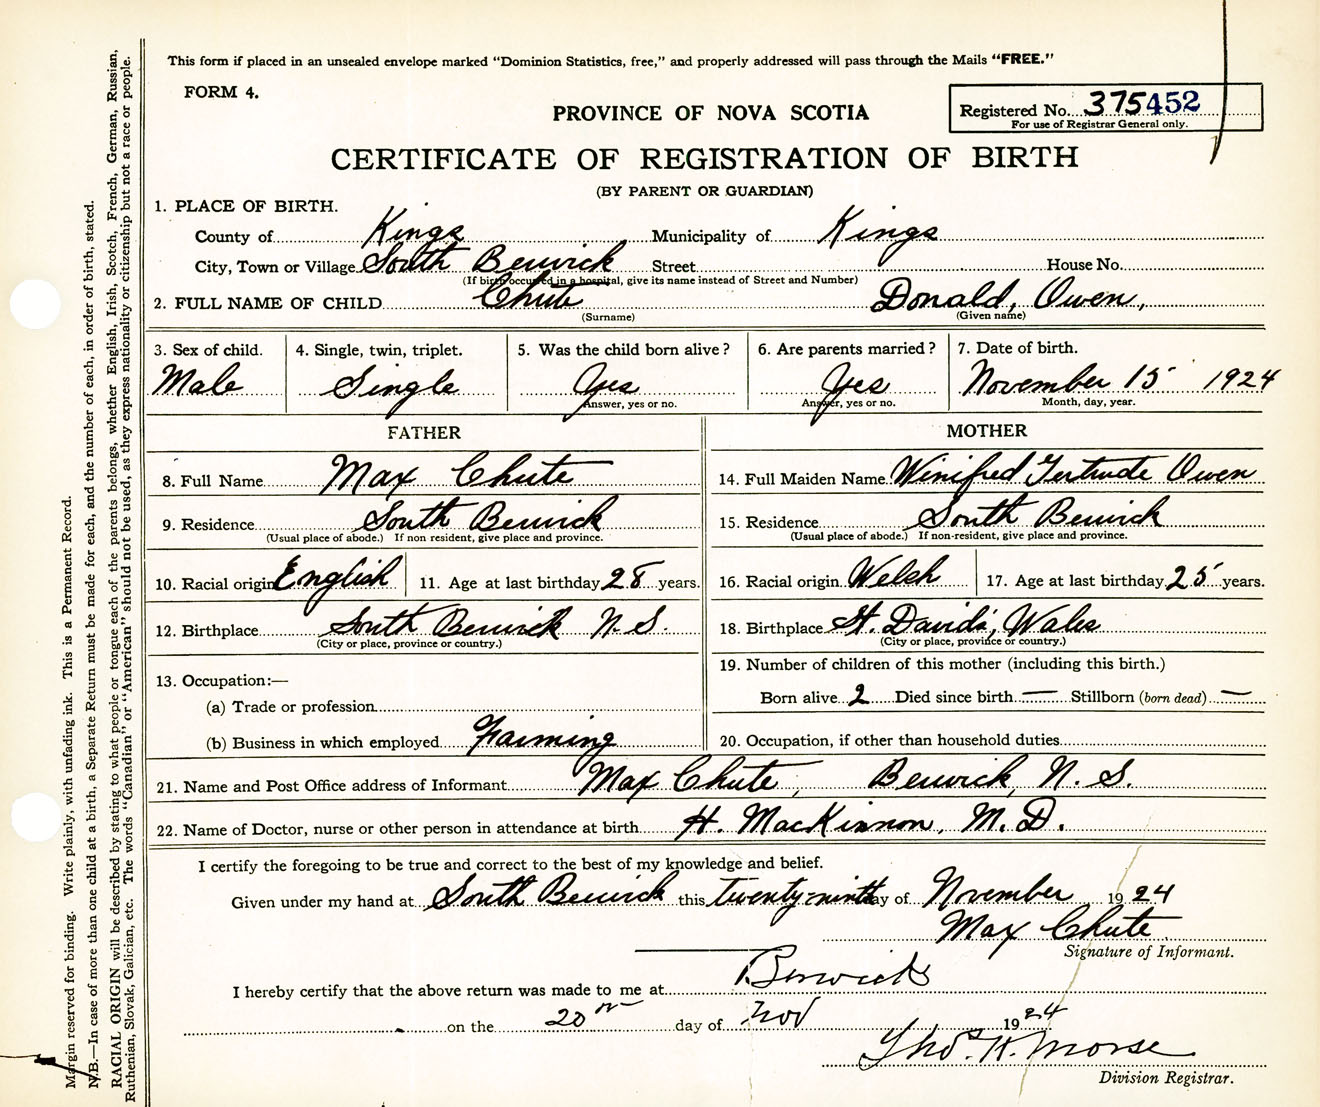 This form if placed in an unsealed envelope marked "Dominion Statistics, free," and properly addressed will pass through the Mails "FREE."
FORM 4.
PROVINCE OF NOVA SCOTIA
Registered No. 375452
For use of Registrar General only.
CERTIFICATE OF REGISTRATION OF BIRTH
(BY PARENT OR GUARDIAN)
1. PLACE OF BIRTH.
County of Kings Municipality of Kings
City, Town or Village South Berwick Street House No.
(If birth occurred in a hospital, give its name instead of Street and Number)
2. FULL NAME OF CHILD Chute Donald, Owen,
(Surname) (Given name)
3. Sex of child. 4. Single, twin, triplet. 5. Was the child born alive? 6. Are parents married? 7. Date of birth.
Male Single Yes Yes November 15 1924
Answer, yes or no. Answer, yes or no. Month, day, year.
FATHER MOTHER
8. Full Name Max Chute 14. Full Maiden Name Winifred Gertrude Owen
9. Residence South Berwick 15. Residence South Berwick
(Usual place of abode.) If non resident, give place and province. (Usual place of abode.) If non-resident, give place and province.
10. Racial origin English 11. Age at last birthday 28 years. 16. Racial origin Welsh 17. Age at last birthday 25 years.
12. Birthplace South Berwick N. S. 18. Birthplace St. David's, Wales
(City or place, province or country.) (City or place, province or country.)
13. Occupation:— 19. Number of children of this mother (including this birth.)
(a) Trade or profession Born alive 2 Died since birth — Stillborn (born dead) —
(b) Business in which employed Farming 20. Occupation, if other than household duties
21. Name and Post Office address of Informant Max Chute, Berwick, N. S.
22. Name of Doctor, nurse or other person in attendance at birth H. MacKinnon, M. D.
I certify the foregoing to be true and correct to the best of my knowledge and belief.
Given under my hand at South Berwick this twenty ninth day of November 1924
Max Chute
Signature of Informant.
I hereby certify that the above return was made to me at Berwick
on the 20 day of Nov 1924
Thos. H. Morse
Division Registrar.
Margin reserved for binding. Write plainly, with unfading ink. This is a Permanent Record.
N.B.—In case of more than one child at a birth, a Separate Return must be made for each, and the number of each, in order of birth, stated.
RACIAL ORIGIN will be described by stating to what people or tongue each of the parents belongs, whether English, Irish, Scotch, French, German, Russian,
Ruthenian, Slovak, Galician, etc. The words "Canadian" or "American" should not be used, as they express nationality or citizenship but not a race or people.